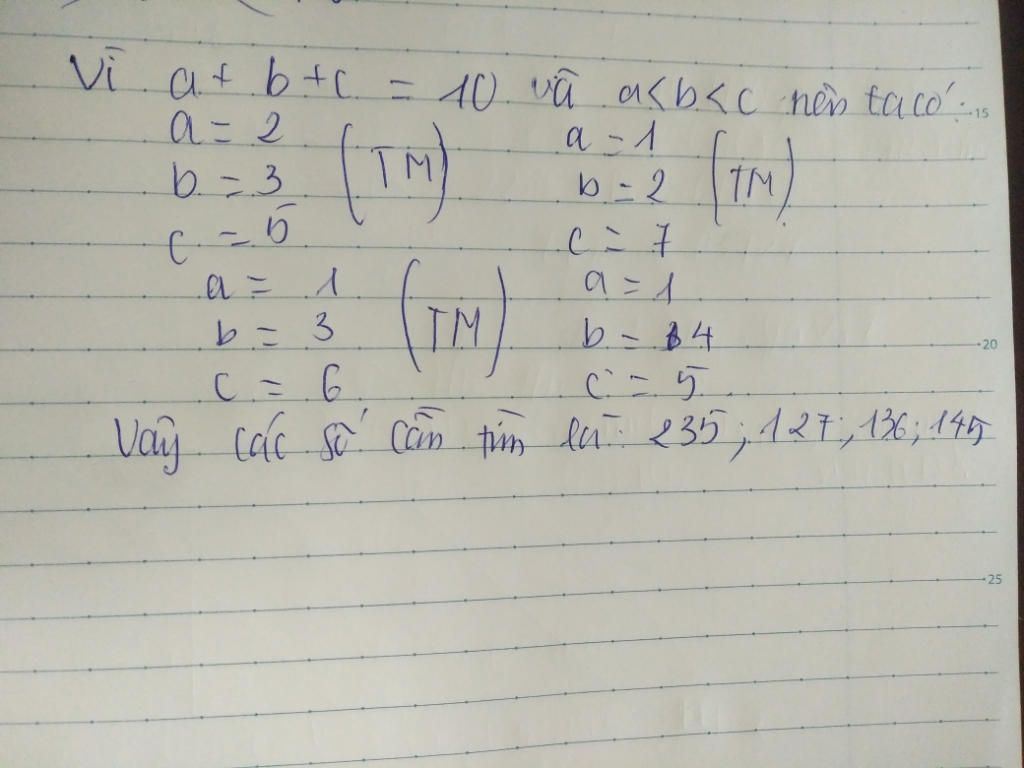 Vì a + b + c = 10 và a < b < c nên ta có: 15
a = 2 a = 1
b = 3 (TM) b = 2 (TM)
c = 5 c = 7
a = 1 a = 1
b = 3 (TM) b = 4 20
c = 6 c = 5
Vậy các số cần tìm là: 235; 127; 136; 145
25